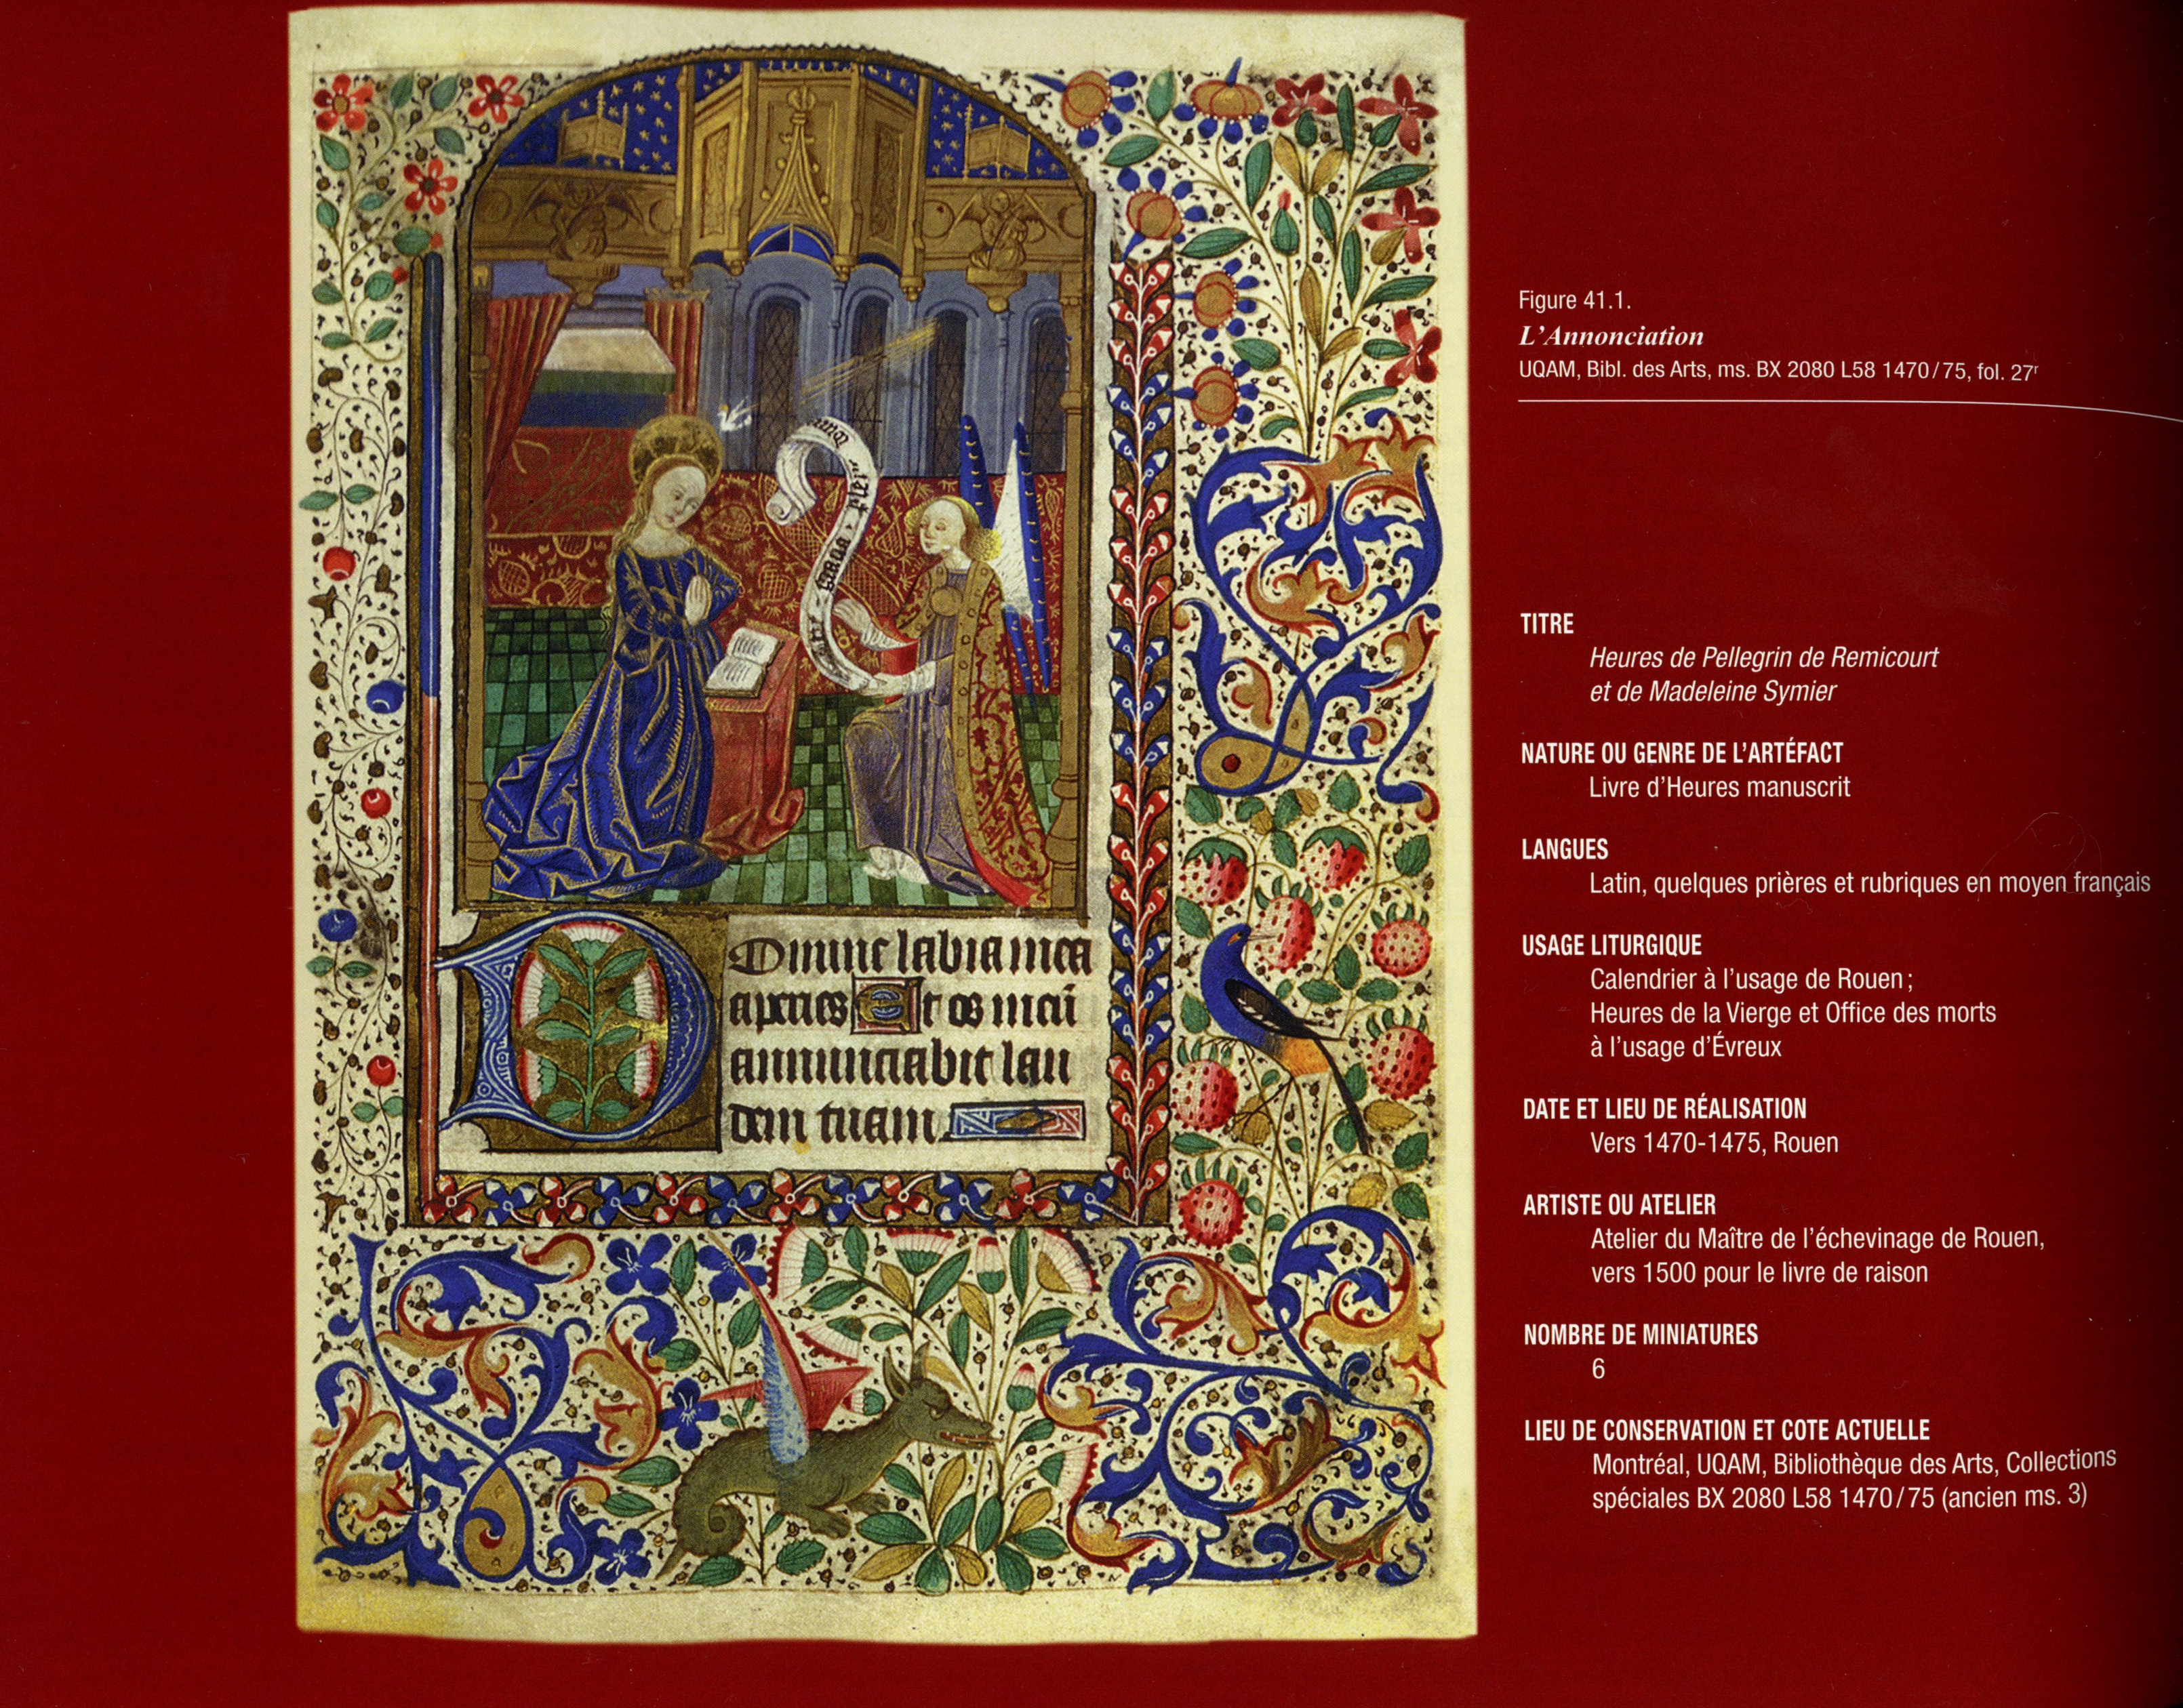 Aue gracia
DOmine labia mea
aperies Et os meū
annunciabit lau
dem tuam
Figure 41.1.
L'Annonciation
UQAM, Bibl. des Arts, ms. BX 2080 L58 1470/75, fol. 27r
TITRE
Heures de Pellegrin de Remicourt
et de Madeleine Symier
NATURE OU GENRE DE L'ARTÉFACT
Livre d'Heures manuscrit
LANGUES
Latin, quelques prières et rubriques en moyen français
USAGE LITURGIQUE
Calendrier à l'usage de Rouen ;
Heures de la Vierge et Office des morts
à l'usage d'Évreux
DATE ET LIEU DE RÉALISATION
Vers 1470-1475, Rouen
ARTISTE OU ATELIER
Atelier du Maître de l'échevinage de Rouen,
vers 1500 pour le livre de raison
NOMBRE DE MINIATURES
6
LIEU DE CONSERVATION ET COTE ACTUELLE
Montréal, UQAM, Bibliothèque des Arts, Collections
spéciales BX 2080 L58 1470/75 (ancien ms. 3)